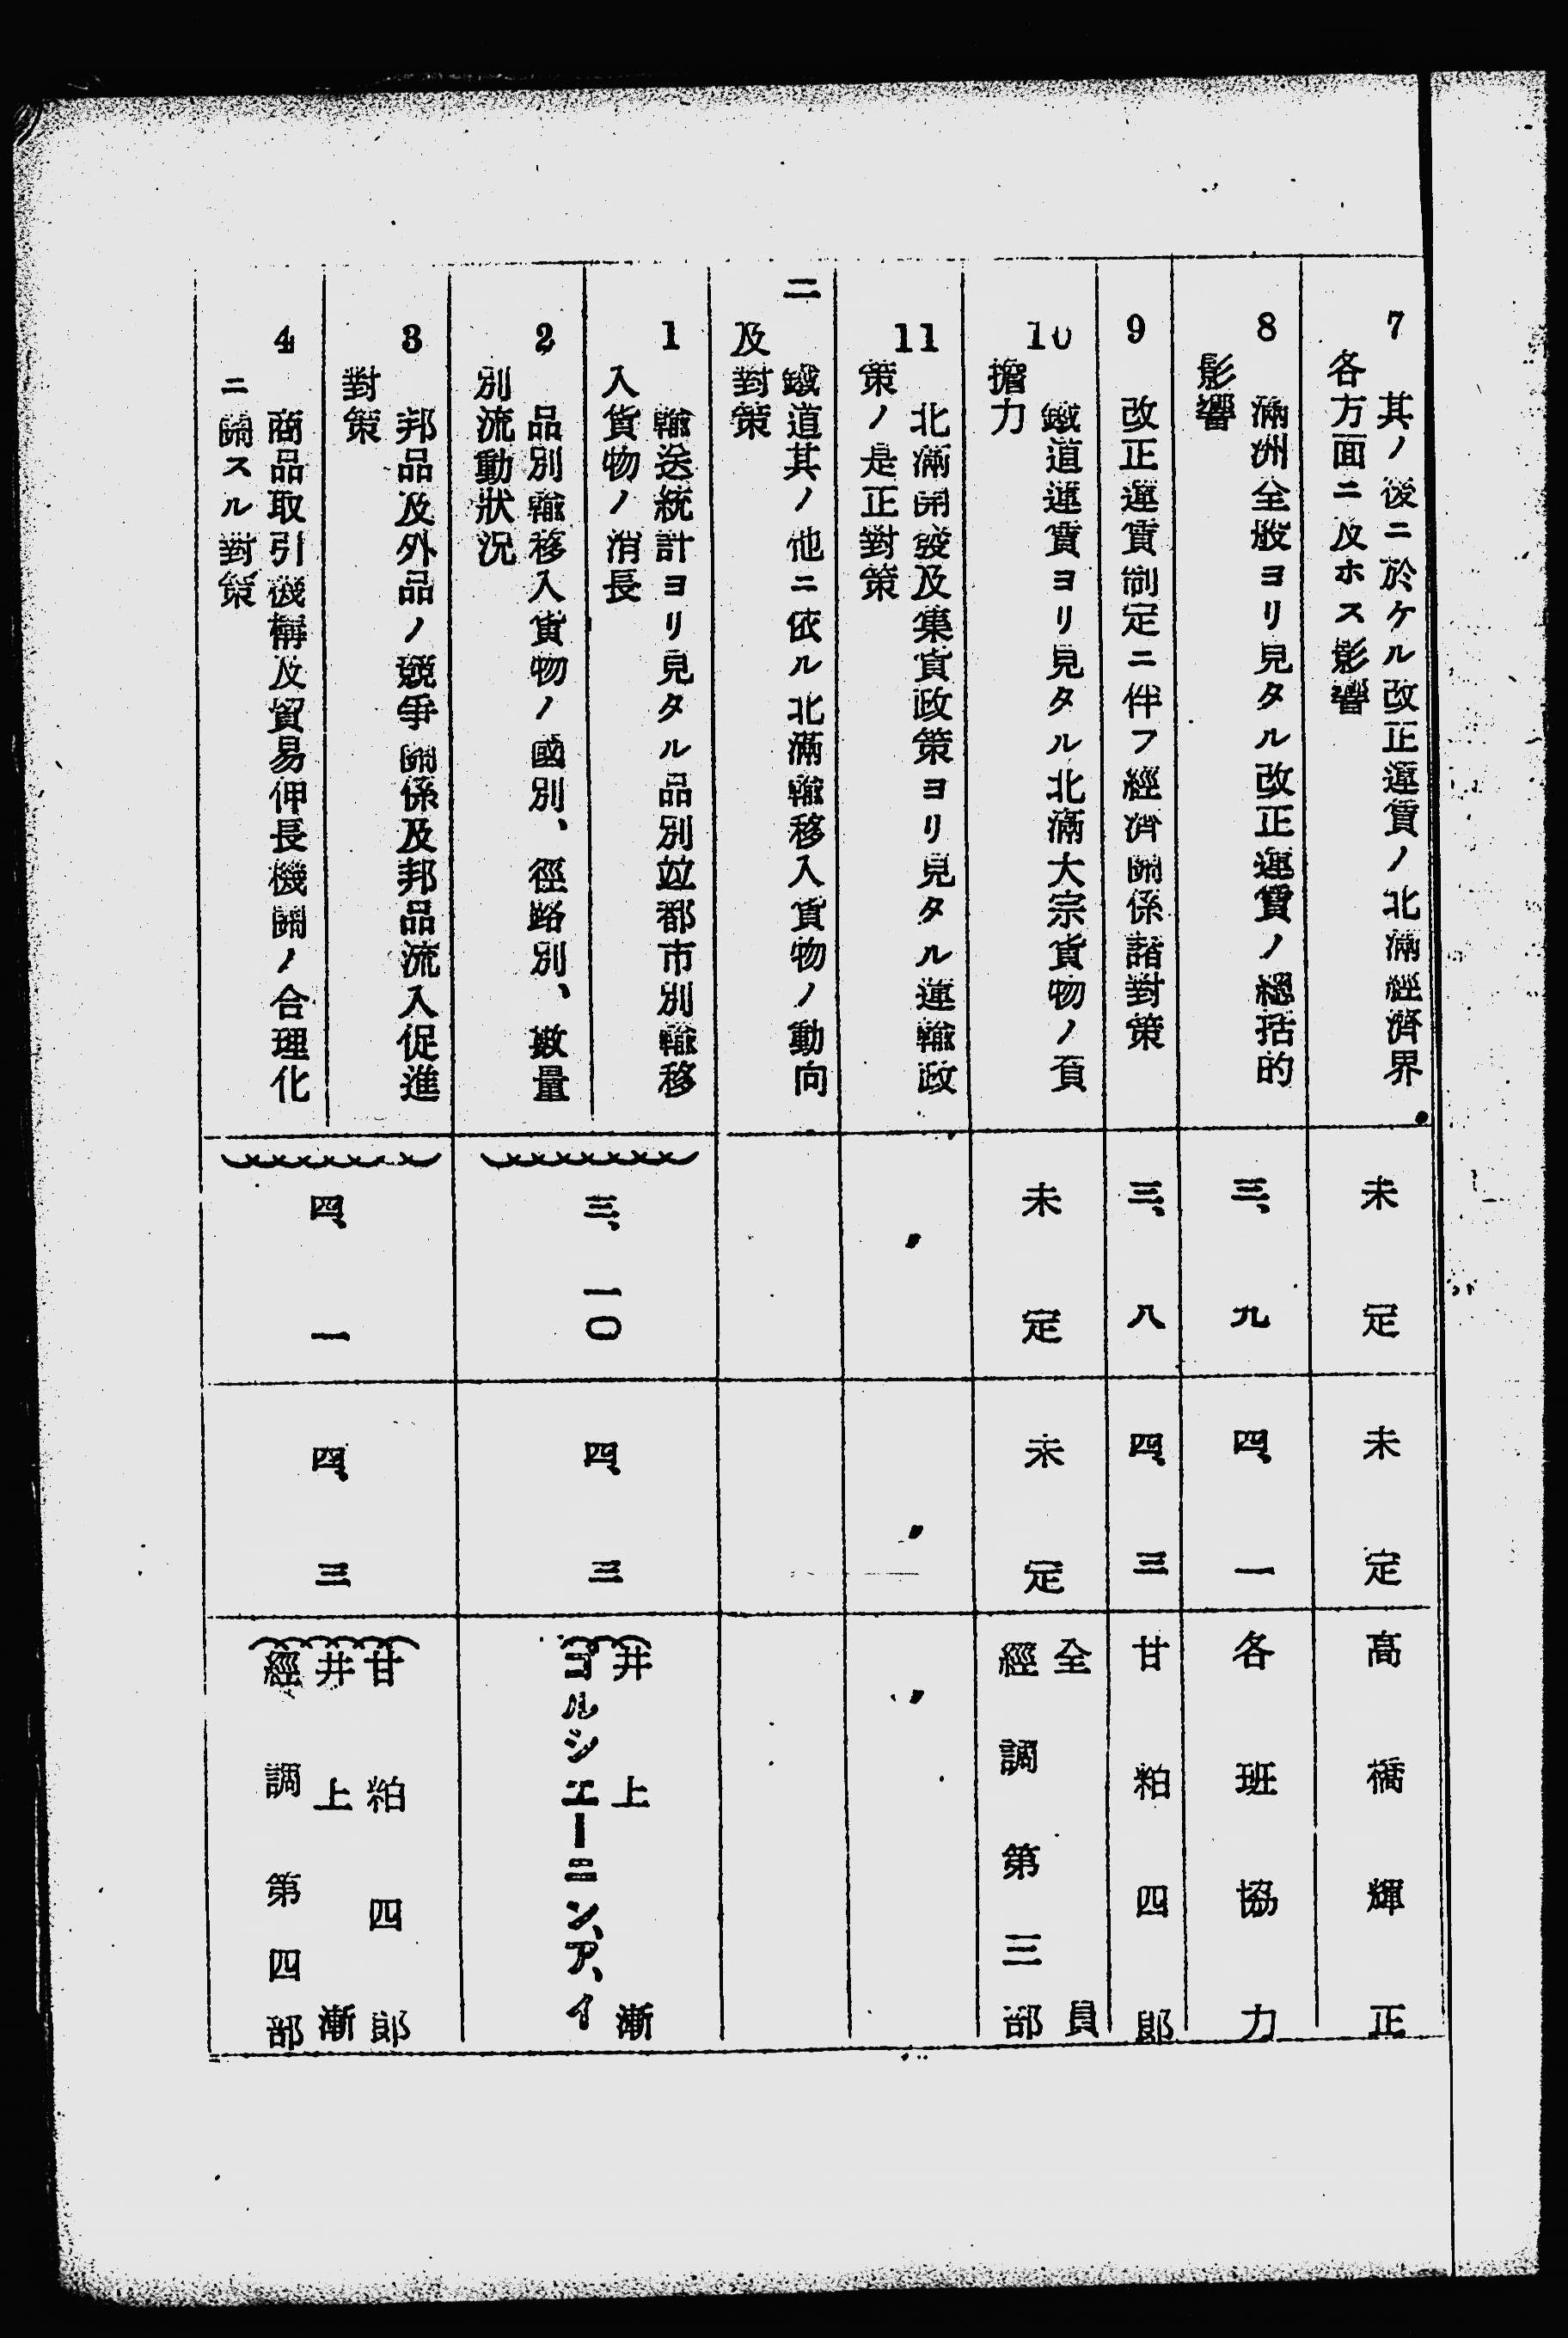 7 其ノ後ニ於ケル改正運賃ノ北滿經濟界
各方面ニ及ホス影響
未定
未定
高橋輝正
8 滿洲全般ヨリ見タル改正運賃ノ總括的
影響
三、九
四、一
各班協力
9 改正運賃制定ニ伴フ經濟關係諸對策
三、八
四、三
甘粕四郎
10 鐵道運賃ヨリ見タル北滿大宗貨物ノ負
擔力
未定
未定
全員
經調第三部
11 北滿開發及集貨政策ヨリ見タル運輸政
策ノ是正對策
〃
〃
〃
二 鐵道其ノ他ニ依ル北滿輸移入貨物ノ動向
及對策
1 輸送統計ヨリ見タル品別竝都市別輸移
入貨物ノ消長
2 品別輸移入貨物ノ國別、徑路別、數量
別流動狀況
三、一〇
四、三
井上漸
コルシエーニン、ア、イ
3 邦品及外品ノ競爭關係及邦品流入促進
對策
4 商品取引機構及貿易伸長機關ノ合理化
ニ關スル對策
四、一
四、三
甘粕四郎
井上漸
經調第四部